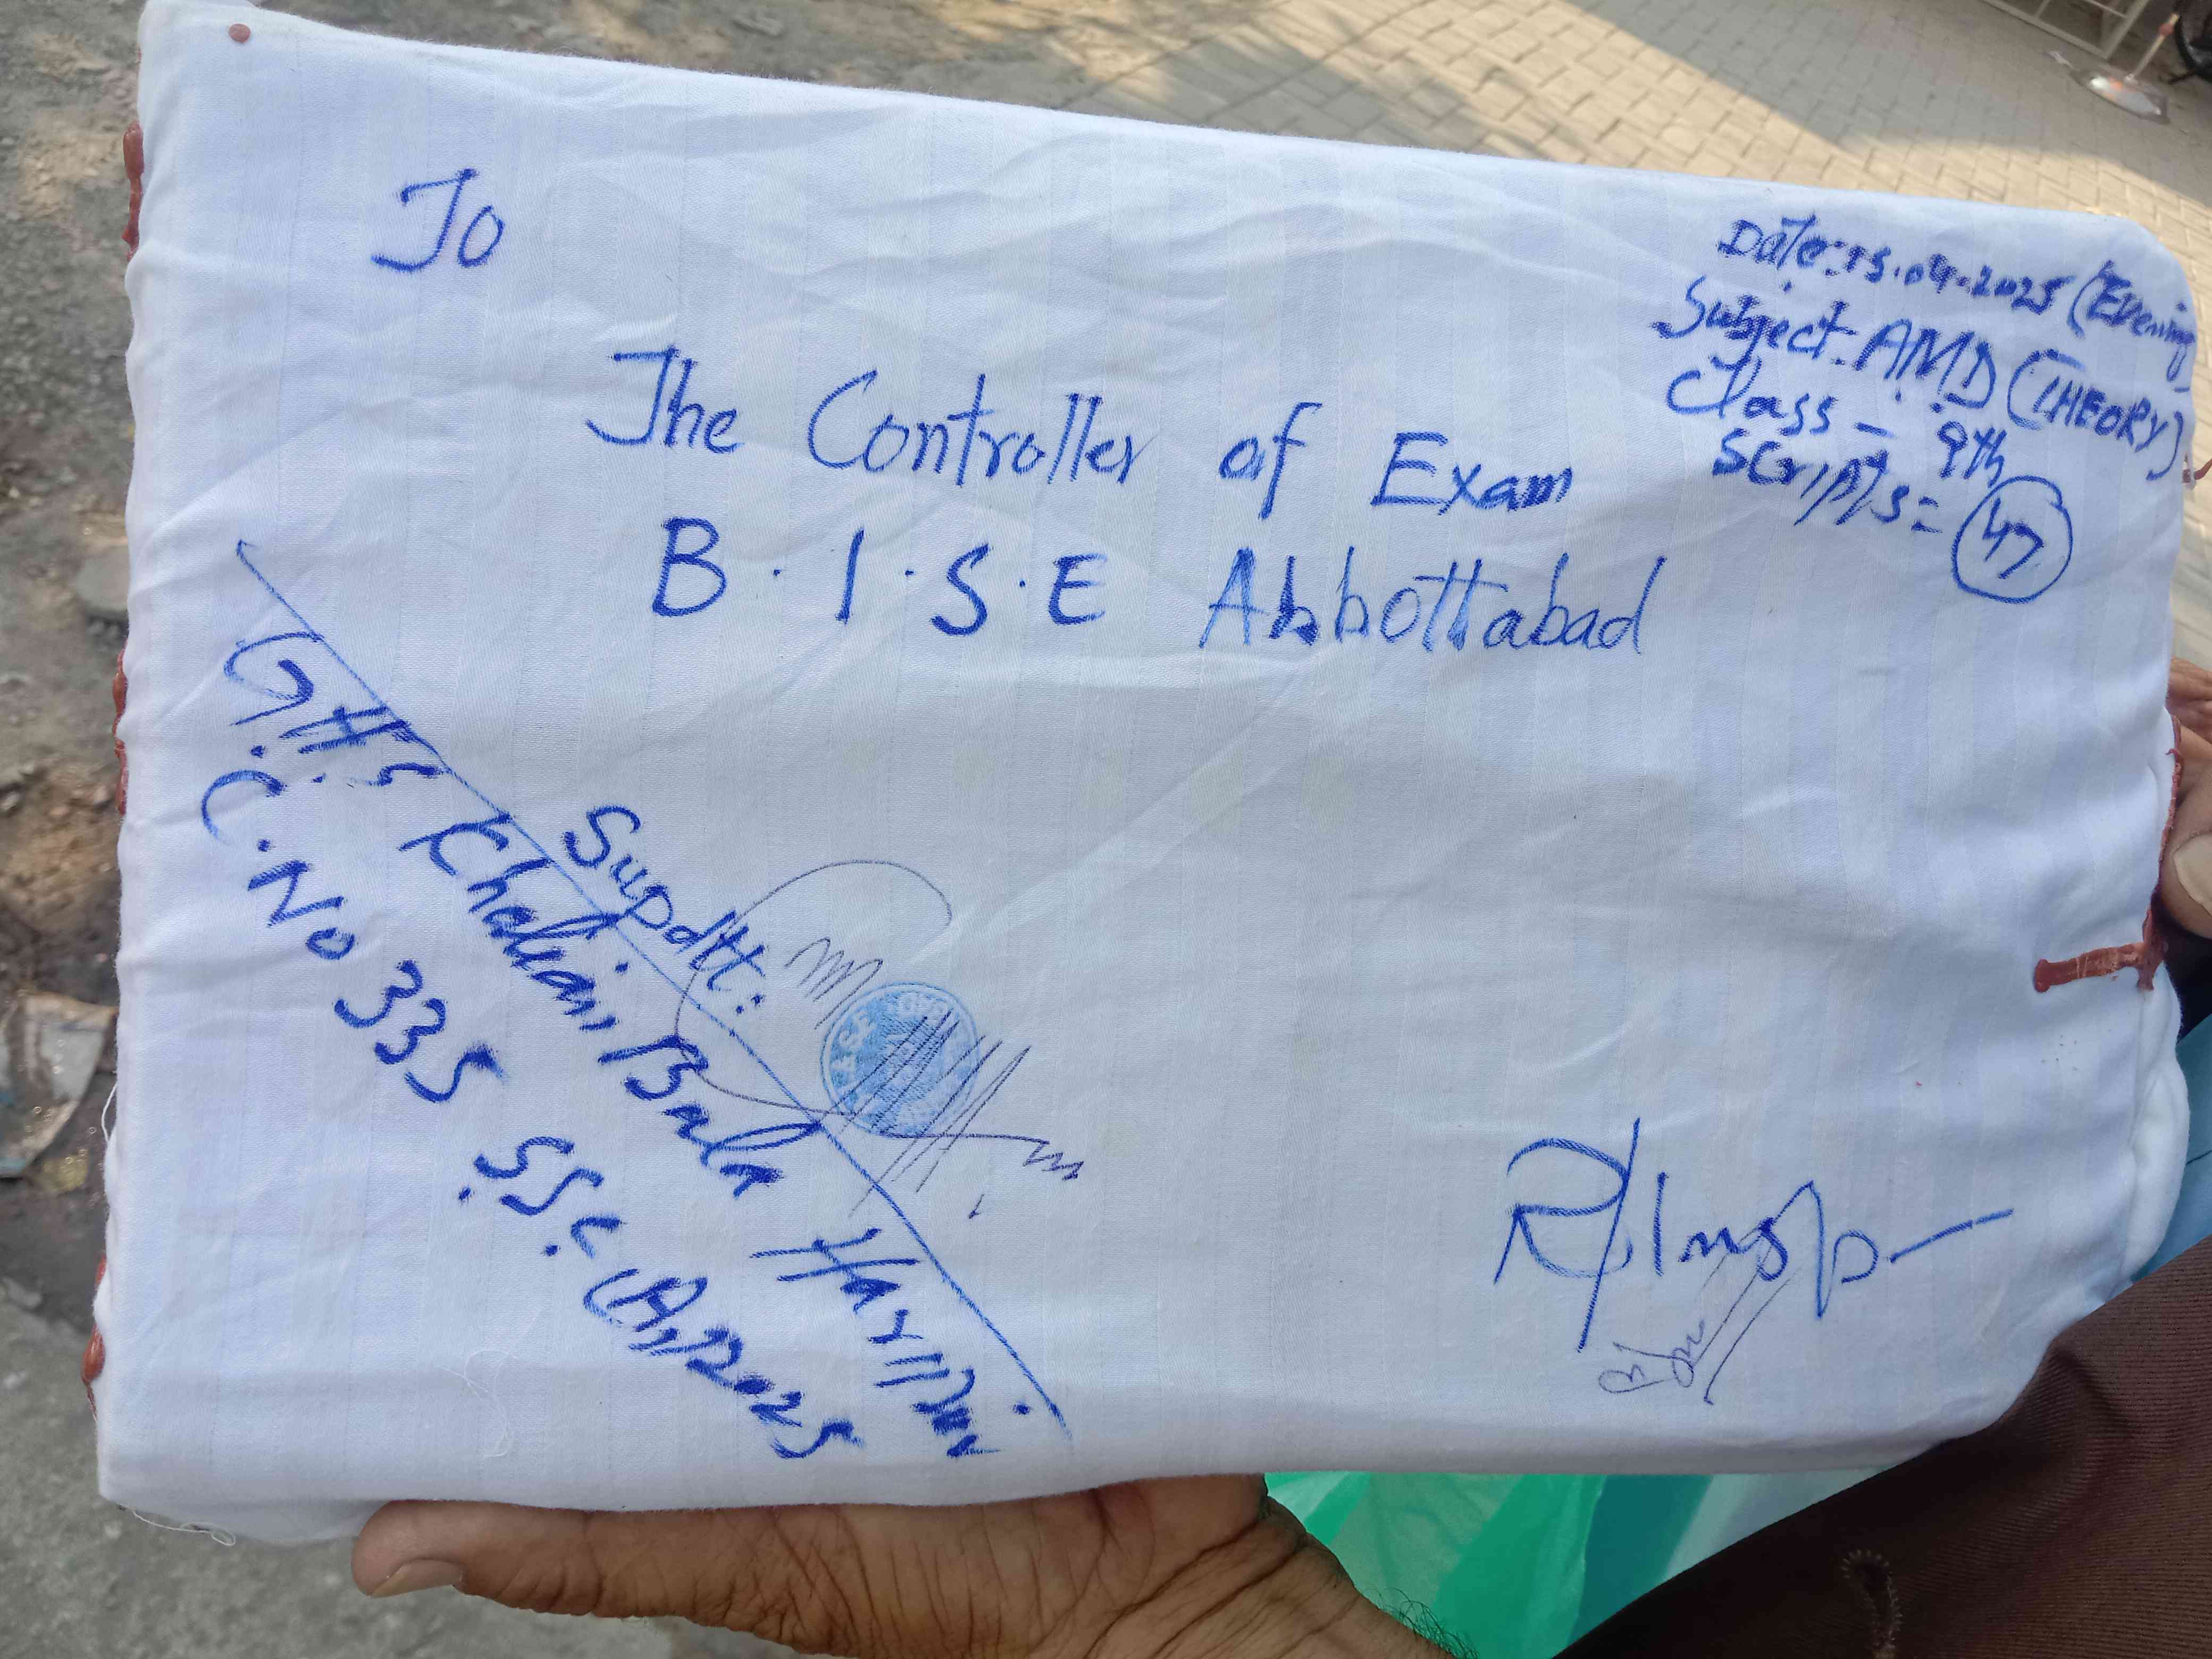 To
Date: 15.04.2025 (Evening)
Subject: AMD (THEORY)
Class = 9th
Scripts = 47
The Controller of Exam
B.I.S.E Abbottabad
Supdtt:
G.H.S Bala Haripur
C.No 335 SSC (A) 2025
R/Insp